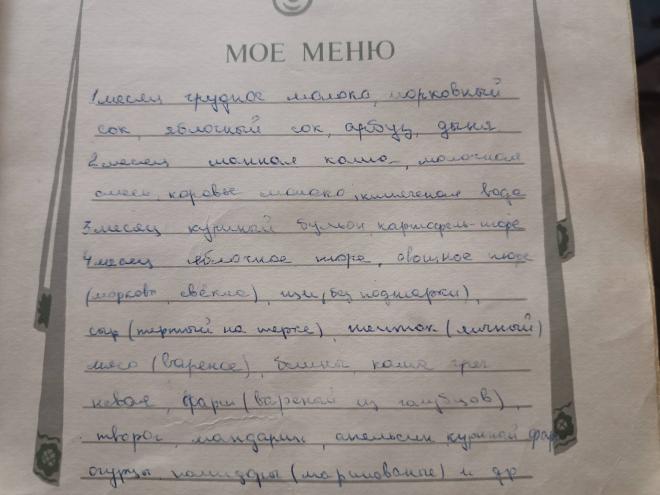 МОЕ МЕНЮ
1 месяц грудное молоко, морковный
сок, яблочный сок, арбуз, дыня
2 месяц манная каша, молочная
смесь, коровье молоко, кипяченая вода
3 месяц куриный бульон, картофель-пюре
4 месяц яблочное пюре, овощное пюре
(морковь, свёкла), щи (без поджарки),
сыр (тертый на терке), желток (яичный)
мясо (вареное), блины, каша греч
невая, фарш (вареный из голубцов),
творог, мандарин, апельсин, куриный фарш
огурцы, помидоры (маринованые) и др